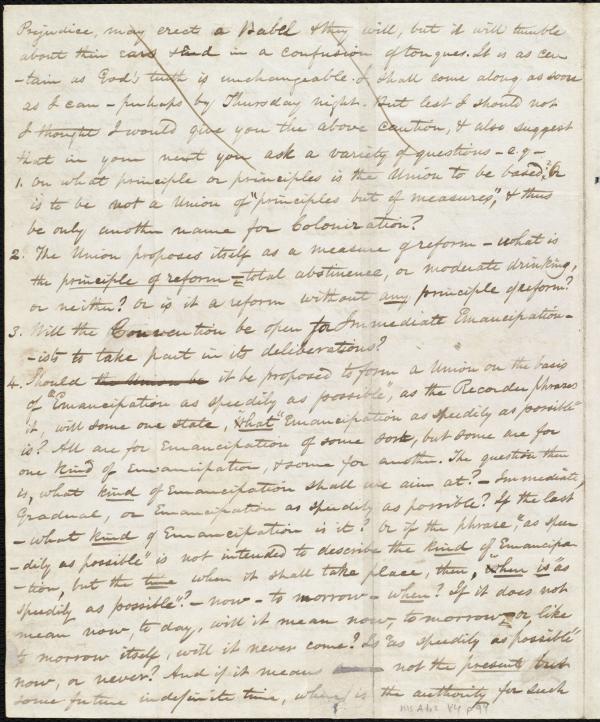 Prejudice, may erect a Babel & they will, but it will tumble
about their ears & End in a confusion of tongues. It is as cer
-tain as God's truth is unchangeable. I shall come along as soon
as I can - perhaps by Thursday night. But lest I should not
I thought I would give you the above caution, & also suggest
that in your next you ask a variety of questions - e.g. -
1. On what principle or principles is the Union to be based? Or
is to be not a Union of "principles but of measures", & thus
be only another name for Colonization?
2. The Union proposes itself as a measure of reform - what is
the principle of reform - total abstinence, or moderate drinking,
or neither? Or is it a reform without any principle of reform?
3. Will the Convention be open for Immediate Emancipation-
-ists to take part in its deliberations?
4. Should the Union be it be proposed to form a Union on the basis
of "Emancipation as speedily as possible", as the Recorder phrases
it, will some one state, what "Emancipation as speedily as possible"
is? All are for Emancipation of some sort, but some are for
one kind of Emancipation, & some for another. The question then
is, what kind of Emancipation shall we aim at? - Immediate,
Gradual, or Emancipation as speedily as possible? If the last
- what kind of Emancipation is it? Or if the phrase, "as spee
-dily as possible" is not intended to describe the kind of Emancipa
-tion, but the time when it shall take place, then, "when is "as
speedily as possible"? - now - to morrow - when? If it does not
mean now, to day, will it mean now, to morrow - or, like
to morrow itself, will it never come? Is "as speedily as possible"
now, or never? And if it means not the present but
some future indefinite time, where is the authority for such
MS A.1.2 V4 p 94